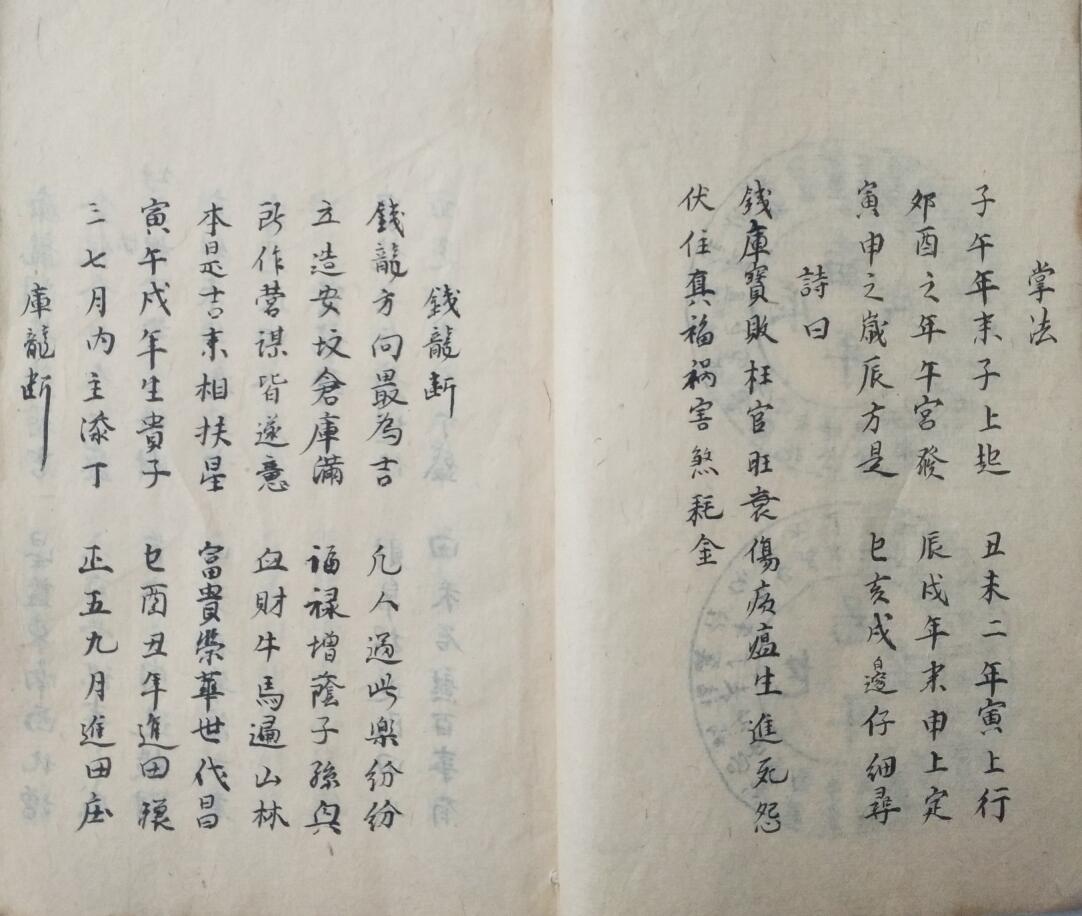 掌法
子午年来子上起 丑未二年寅上行
卯酉之年午宮發 辰戌年来申上定
寅申之歲辰方是 巳亥戌邊仔細尋
詩曰
錢庫寶敗枉官旺衰傷病瘟生進死怨
伏住真福禍害煞耗金
錢龍断
錢龍方向最為吉 凢人遇此樂紛紛
立造安坟倉庫滿 福禄增蔭子孫興
所作营谋皆遂意 血財牛馬遍山林
本是吉来相扶星 富貴榮華世代昌
寅午戌年生貴子 巳酉丑年進田
三七月内主添丁 正五九月進田庄
庫龍断